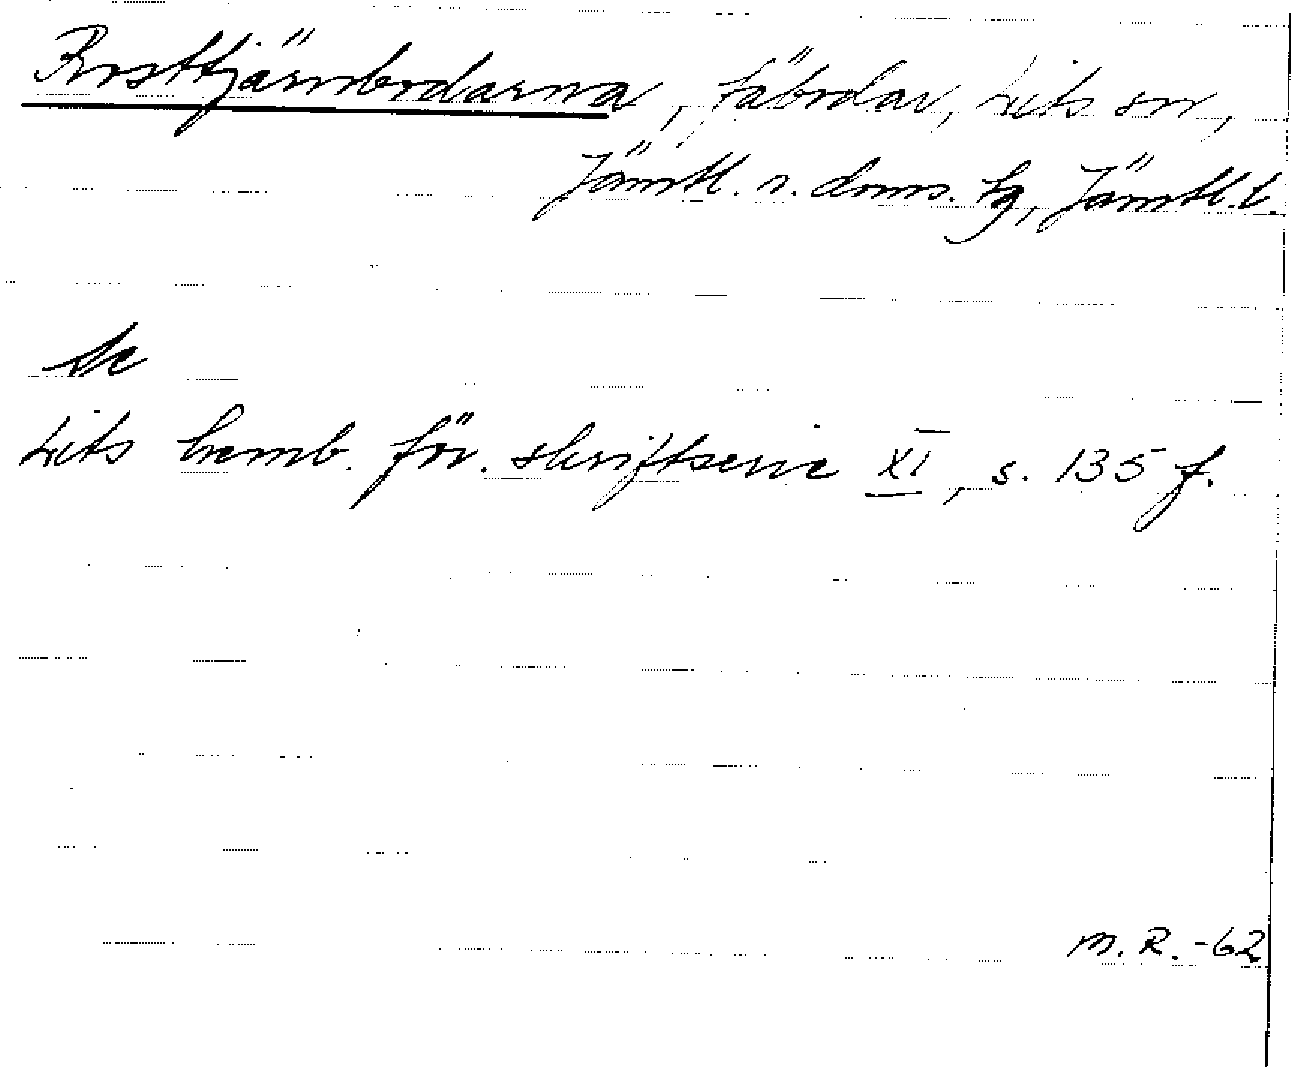 Rosttjärnbodarna, fäbodar, Lits sn,
Jämtl. n. doms. tg, Jämtl. l.
Se
Lits hemb. för. skriftserie XI, s. 135 f.
M. R. -62